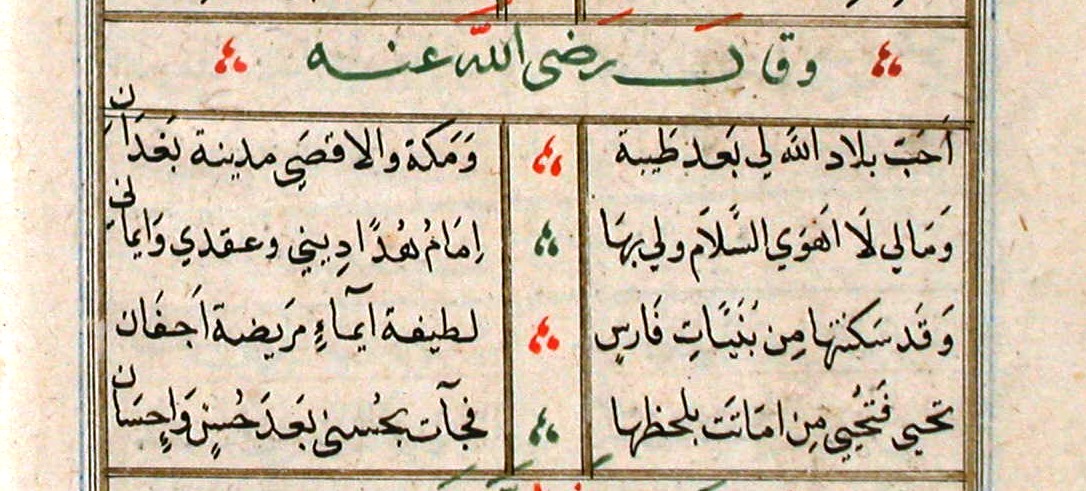 وقال رضى الله عنه
اَحَبّ بلاد الله لي بَعد طَيبة وَمَكة والاقصَى مدينة بَغدَان
وَمَالي لَا اَهوَي السَّلَام ولي بهَا اِمَامُ هُدًا دِيني وعقدي وَايمانى
وَقَد سَكنتها مِن بُنَيَّاتِ فَارسٍ لطيفة آيمآءٍ مرَيضة اَجفَان
تحيى فَتُحيي مِن امَاتَت بلحظها فجآت بحُسنى بَعدَ حُسنٍ وَاِحسَان